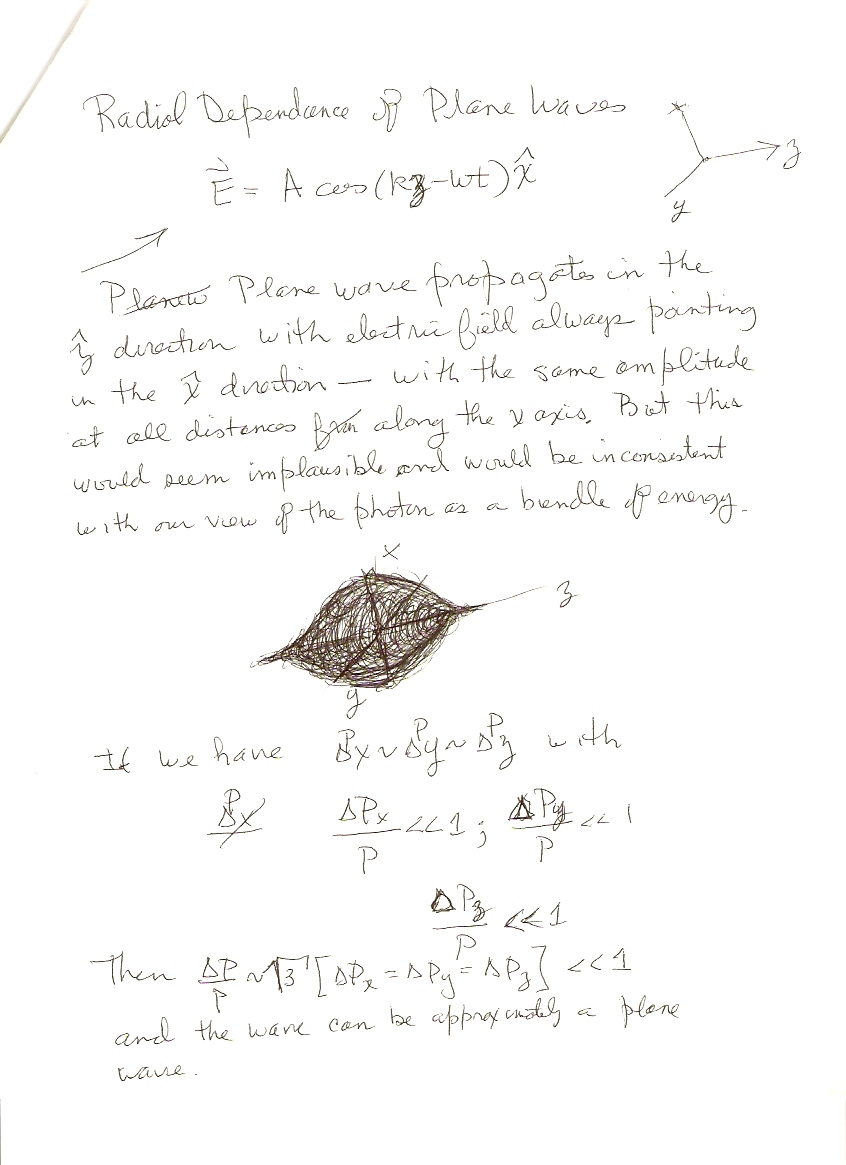 Radial Dependence of Plane Waves
x
z
y
E⃗ = A cos(kz-ωt)x̂
Plane wave propagates in the
ẑ direction with electric field always pointing
in the x̂ direction — with the same amplitude
at all distances along the x axis. But this
would seem implausible and would be inconsistent
with our view of the photon as a bundle of energy.
x
z
y
If we have ΔPx ~ ΔPy ~ ΔPz with
ΔPx
ΔPx/P <<1; ΔPy/P << 1
ΔPz/P <<1
Then ΔP/P ~ √3 [ΔPx = ΔPy = ΔPz] <<1
and the wave can be approximately a plane
wave.